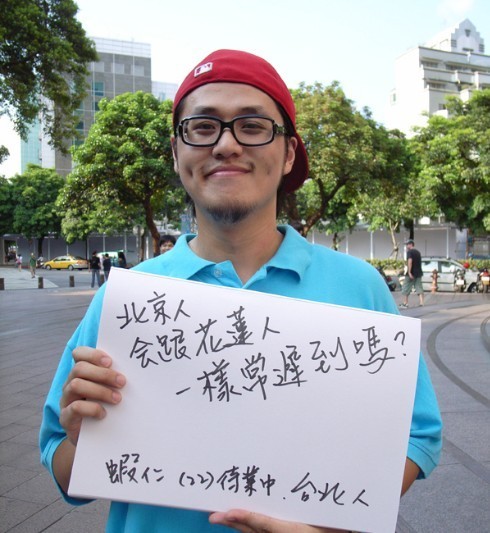 北京人
会跟花蓮人
一樣常遲到嗎?
蝦仁 (22)待業中、台北人